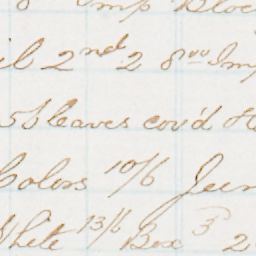 8 Imp Bloc
il 2nd 2 8vo Imp
5 bleaves cov'd
Colors 10/6 Jeen
White 13/6 Box 3 2